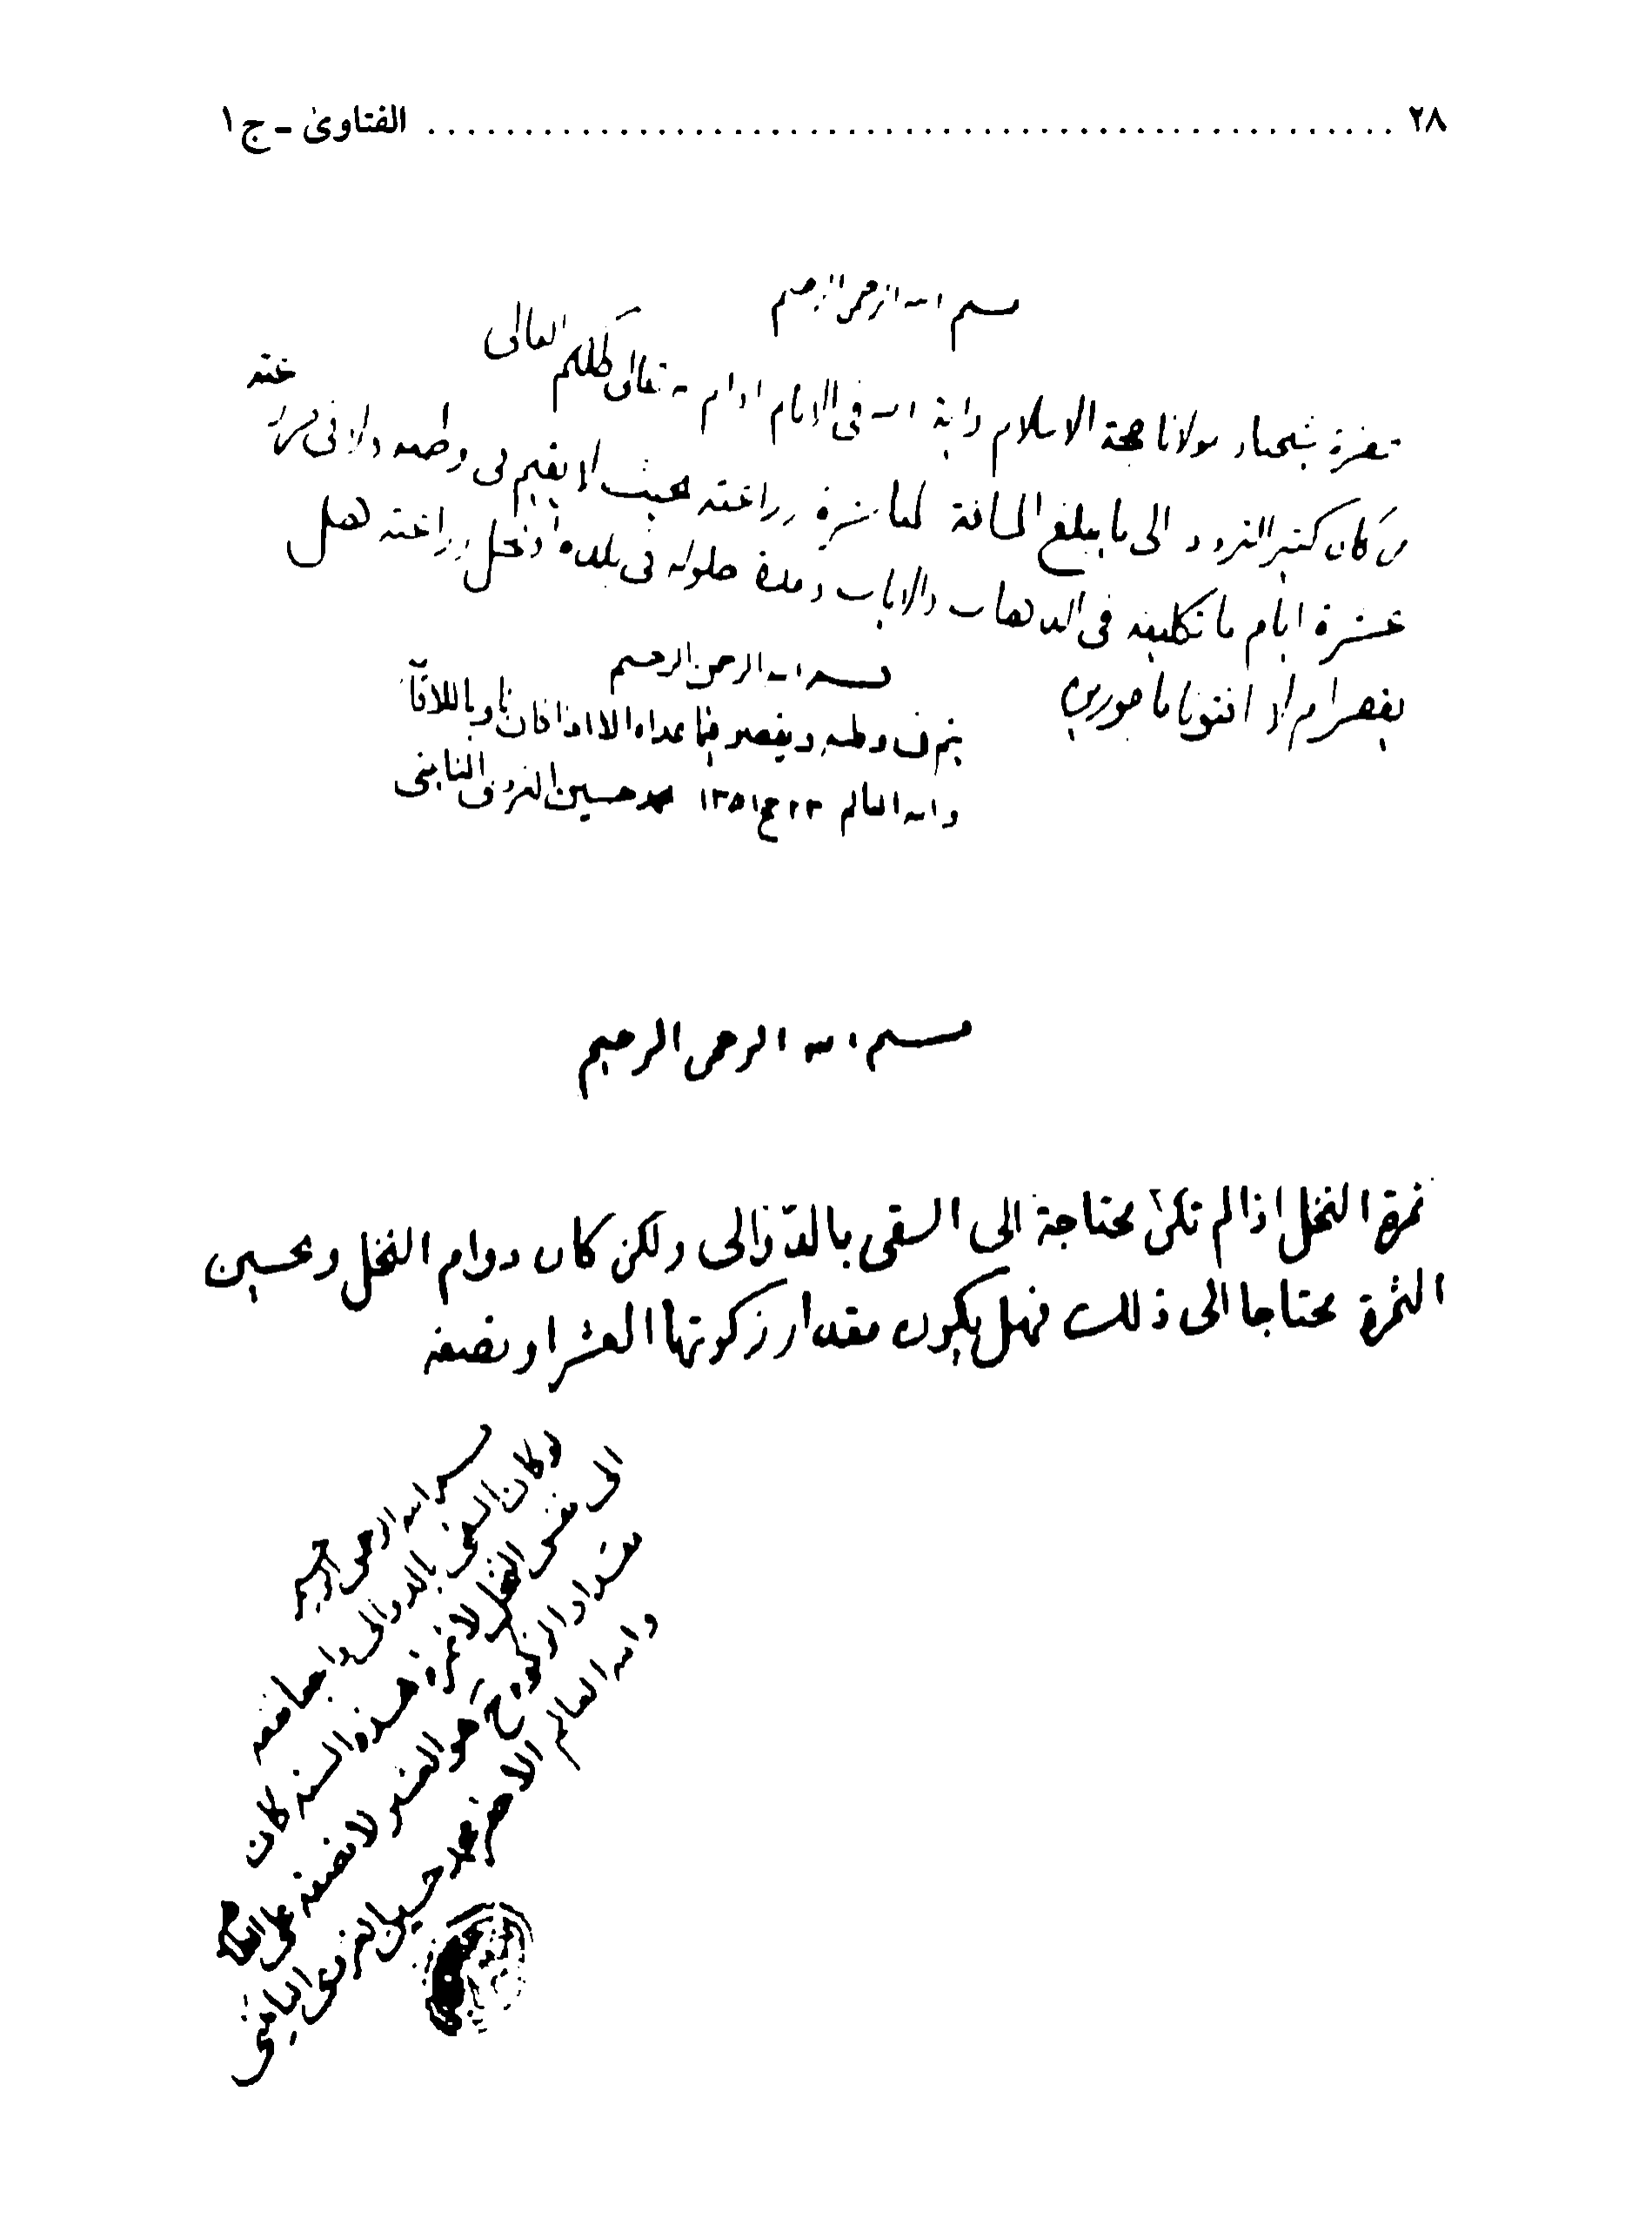 ٢٨ ........ الفتاوىٰ - ج١
بسم الله الرحمن الرحيم
مولانا حجة الاسلام واية الله في الانام ادام الله تعالى ظلكم العالي
من كان كثير التردد الى ما يبلغ المسافة لمباشرة زراعته بحيث لا يقيم في وطنه ولا في مزرعته
عشرة ايام ما تكليفه في الذهاب والاياب ومدة حلوله في بلده او محل زراعته هل
يقصر ام لا افتونا ماجورين
بسم الله الرحمن الرحيم
يتم في وطنه ويقصر فيما عداه الا اذا كان ناويا للاقامة
والله العالم ٢٣ ج١ ١٣٥١ محمد حسين الغروي النائيني
بسم الله الرحمن الرحيم
ثمرة النخل اذا لم تكن محتاجة الى السقى بالدوالى ولكن كان دوام النخل وتحسين
الثمرة محتاجا الى ذلك فهل يكون مقدار زكوتها العشر او نصفه
بسم الله الرحمن الرحيم
لو كان السقي بالدوالى راجعا نفعه
الى نفس النخل لا ثمرة هذه السنه كان
مقدار الزكوة ح هو العشر لا نصفه على
والله العالم
الاحقر محمد حسين الغروي النائيني